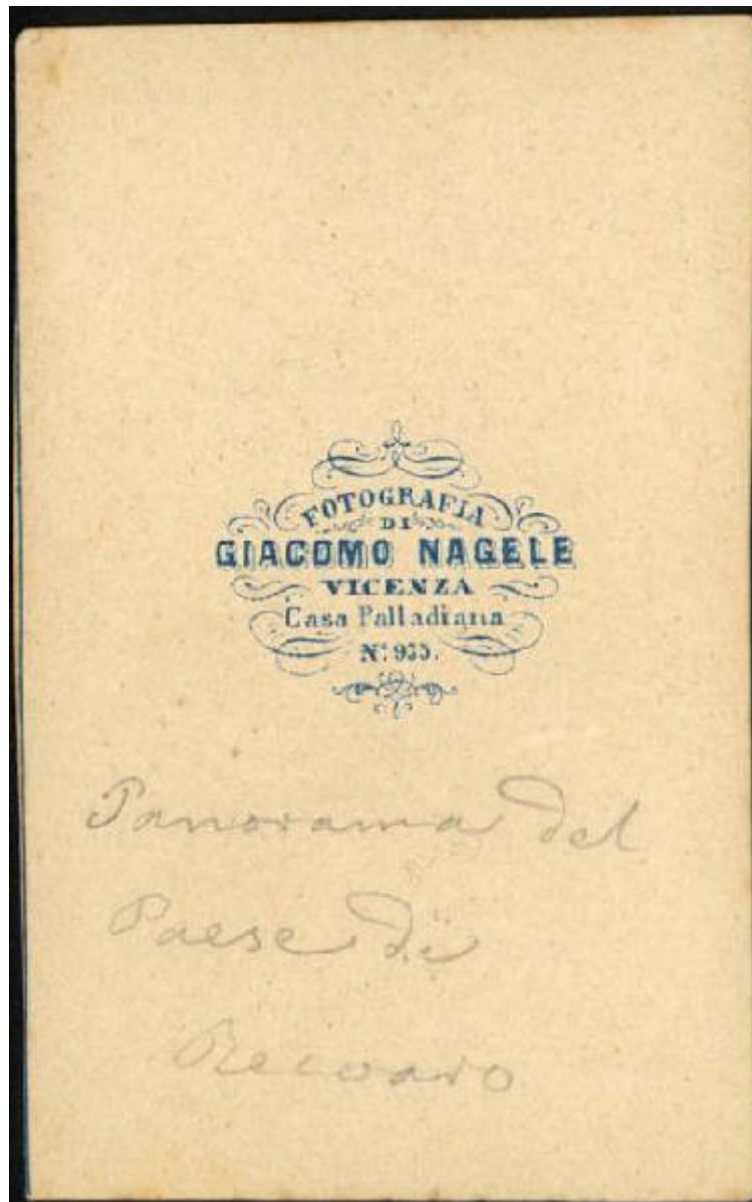 FOTOGRAFIA
DI
GIACOMO NAGELE
VICENZA
Casa Palladiana
Panorama del
Paese di
Recoaro